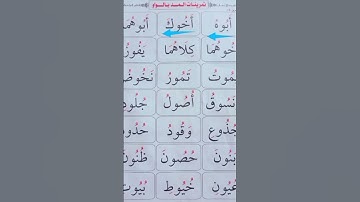 تمرينات المد بالواو
أَبُوهُ أَخُوكَ أَبُوهُمَا
خُوهُمَا كِلَاهُمَا يَفُوزُ
مُوتُ تَمُورُ نَخُوضُ
نَسُوقُ أُصُولُ جُلُود
جُذُوعِ وَقُودُ حُدُود
بَنُونَ حُصُونَ ظُنُونَ
عُيُونِ خُيُوطِ بُيُوتَ